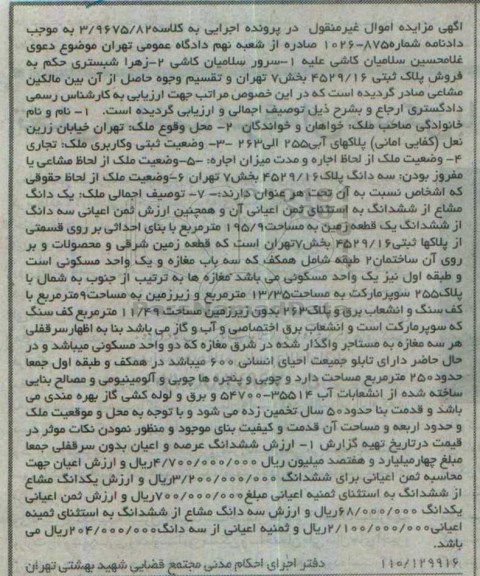 آگهی مزایده اموال غیرمنقول در پرونده اجرایی به کلاسه ۳/۹۶۷۵/۸۲ به موجب
دادنامه شماره ۸۷۵-۱۰۲۶ صادره از شعبه نهم دادگاه عمومی تهران موضوع دعوی
غلامحسین سلامیان کاشی علیه ۱-سرور سلامیان کاشی ۲-زهرا شبستری حکم به
فروش پلاک ثبتی ۴۵۲۹/۱۶ بخش۷ تهران و تقسیم وجوه حاصل از آن بین مالکین
مشاعی صادر گردیده است که در این خصوص مراتب جهت ارزیابی به کارشناس رسمی
دادگستری ارجاع و بشرح ذیل توصیف اجمالی و ارزیابی گردیده است. ۱- نام و نام
خانوادگی صاحب ملک: خواهان و خواندگان ۲- محل وقوع ملک: تهران خیابان زرین
نعل (کفایی امانی) پلاکهای آبی۲۵۵ الی۲۶۳ ۳- وضعیت ثبتی وکاربری ملک: تجاری
۴- وضعیت ملک از لحاظ اجاره و مدت میزان اجاره: ۵-وضعیت ملک از لحاظ مشاعی یا
مفروز بودن: سه دانگ پلاک۴۵۲۹/۱۶ بخش۷ تهران ۶-وضعیت ملک از لحاظ حقوقی
که اشخاص نسبت به آن تحت هر عنوان دارند:- ۷- توصیف اجمالی ملک: یک دانگ
مشاع از ششدانگ به استثنای ثمن اعیانی آن و همچنین ارزش ثمن اعیانی سه دانگ
از ششدانگ یک قطعه زمین به مساحت۱۹۵/۹ مترمربع با بنای احداثی بر روی قسمتی
از پلاکها ثبتی۴۵۲۹/۱۶ بخش۷تهران است که قطعه زمین شرقی و محصولات و بر
روی آن ساختمان۲ طبقه شامل همکف که سه باب مغازه و یک واحد مسکونی است
و طبقه اول نیز یک واحد مسکونی می باشد مغازه ها به ترتیب از جنوب به شمال با
پلاک۲۵۵ سوپرمارکت به مساحت۱۳/۳۵ مترمربع و زیرزمین به مساحت۹مترمربع با
کف سنگ و انشعاب برق و پلاک۲۶۳ بدون زیرزمین مساحت۱۱/۴۹ مترمربع کف سنگ
که سوپرمارکت است و انشعاب برق اختصاصی و آب و گاز می باشد بنا به اظهارسرقفلی
هر سه مغازه به مستاجر واگذار شده در شرق مغازه که دو واحد مسکونی میباشد و در
حال حاضر دارای تابلو جمعیت احیای انسانی ۶۰۰ میباشد در همکف و طبقه اول جمعا
حدود۲۵۰ مترمربع مساحت دارد و چوبی و پنجره ها چوبی و آلومینیومی و مصالح بنایی
ساخته شده از انشعابات آب ۳۵۵۱۴-۵۴۷۰۰ و برق و لوله کشی گاز بهره مندی می
باشد و قدمت بنا حدود۵۰ سال تخمین زده می شود و با توجه به محل و موقعیت ملک
و حدود اربعه و مساحت آن قدمت و کیفیت بنای موجود و منظور نمودن نکات موثر در
قیمت درتاریخ تهیه گزارش ۱- ارزش ششدانگ عرصه و اعیان بدون سرقفلی جمعا
مبلغ چهارمیلیارد و هفتصد میلیون ریال ۴/۷۰۰/۰۰۰/۰۰۰ریال و ارزش اعیان جهت
محاسبه ثمن اعیانی برای ششدانگ ۳/۲۰۰/۰۰۰/۰۰۰ریال و ارزش یکدانگ مشاع
از ششدانگ به استثنای ثمنیه اعیانی مبلغ۷۰۰/۰۰۰/۰۰۰ریال و ارزش ثمن اعیانی
یکدانگ ۶۸/۰۰۰/۰۰۰ریال و ارزش سه دانگ مشاع از ششدانگ به استثنای ثمینه
اعیانی۲/۱۰۰/۰۰۰/۰۰۰ریال و ثمنیه اعیانی از سه دانگ۲۰۴/۰۰۰/۰۰۰ریال می
باشد.
۱۱۰/۱۲۹۹۱۶ دفتر اجرای احکام مدنی مجتمع قضایی شهید بهشتی تهران